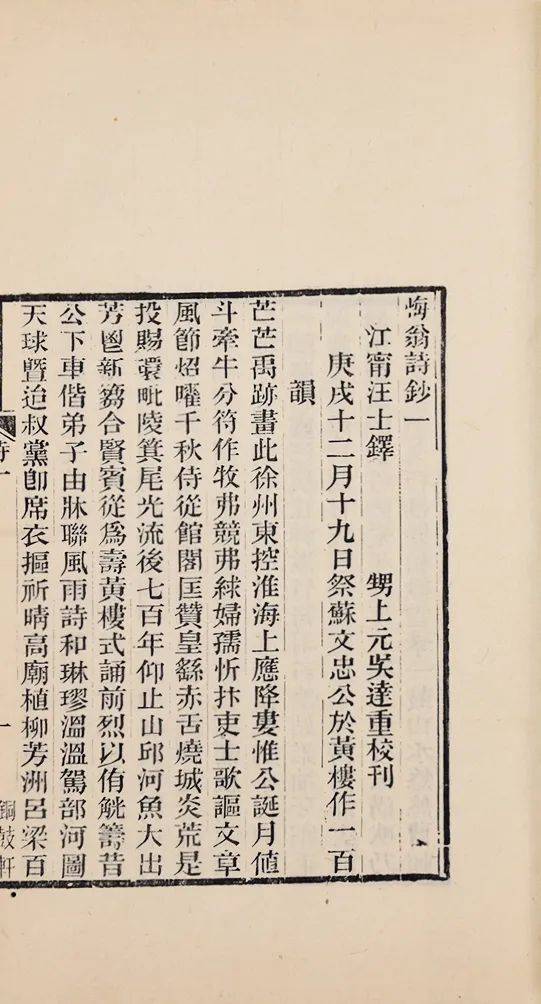 悔翁詩鈔一
江甯汪士鐸　甥上元吳達重校刊
庚戌十二月十九日祭蘇文忠公於黃樓作一百
韻
芒芒禹跡畫此徐州東控淮海上應降婁惟公誕月値
斗牽牛分符作牧弗競弗絿婦孺忻抃吏士歌謳文章
風節炤曜千秋侍從館閣匡贊皇繇赤舌燒城炎荒是
投賜環毗陵箕尾光流後七百年仰止山邱河魚大出
芳鬯新篘合賢賓從爲壽黃樓式誦前烈以侑觥籌昔
公下車偕弟子由牀聯風雨詩和琳璆溫溫駕部河圖
天球曁迨叔黨卽席衣摳祈晴高廟植柳芳洲呂梁百
詩一
一
銅鼓軒